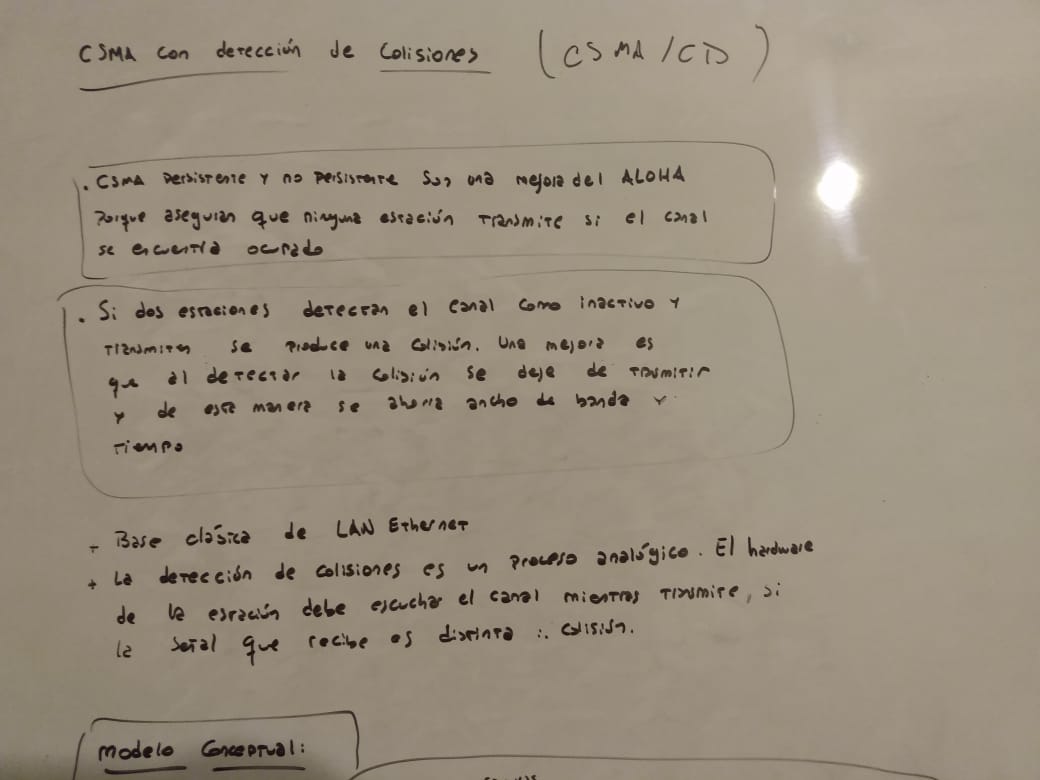 CSMA con detección de Colisiones (CSMA/CD)
. CSMA Persistente y no Persistente Son una mejora del ALOHA
Porque aseguran que ninguna estación transmite si el canal
se encuentra ocupado
. Si dos estaciones detectan el canal como inactivo y
transmiten se produce una colisión. Una mejora es
que al detectar la colisión se deje de trasmitir
y de esta manera se ahorra ancho de banda y
tiempo
+ Base clásica de LAN Ethernet
+ La detección de colisiones es un proceso analógico. El hardware
de la estación debe escuchar el canal mientras transmite, si
la señal que recibe es distinta ∴ colisión.
Modelo Conceptual: